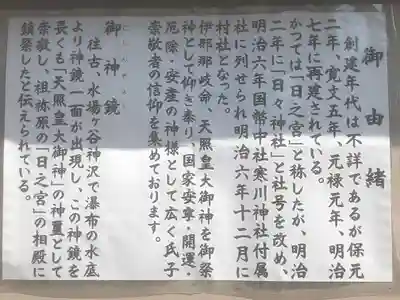 御由緒
創建年代は不詳であるが保元
二年、寛文五年、元禄元年、明治
七年に再建されている。
かつては「日之宮」と称したが、明治
二年に「日々神社」と社号を改め、
明治六年国幣中社寒川神社付属
社に列せられ明治六年十二月に
村社となった。
伊邪那岐命・天照皇大御神を御祭
神として仰ぎ奉り、国家安寧・開運・
厄除・安産の神様として広く氏子
崇敬者の信仰を集めております。
御神鏡
往古、水場ヶ谷神沢で瀑布の水底
より神鏡一面が出現し、この神鏡を
長くも「天照皇大御神」の神璽として
崇敬し、祖祢原の「日之宮」の相殿に
鎮祭したと伝えられている。